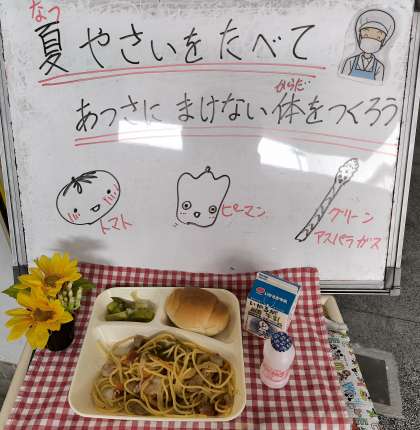 なつ
夏やさいをたべて
からだ
あつさに まけない 体をつくろう
トマト
ピーマン
グリーン
アスパラガス